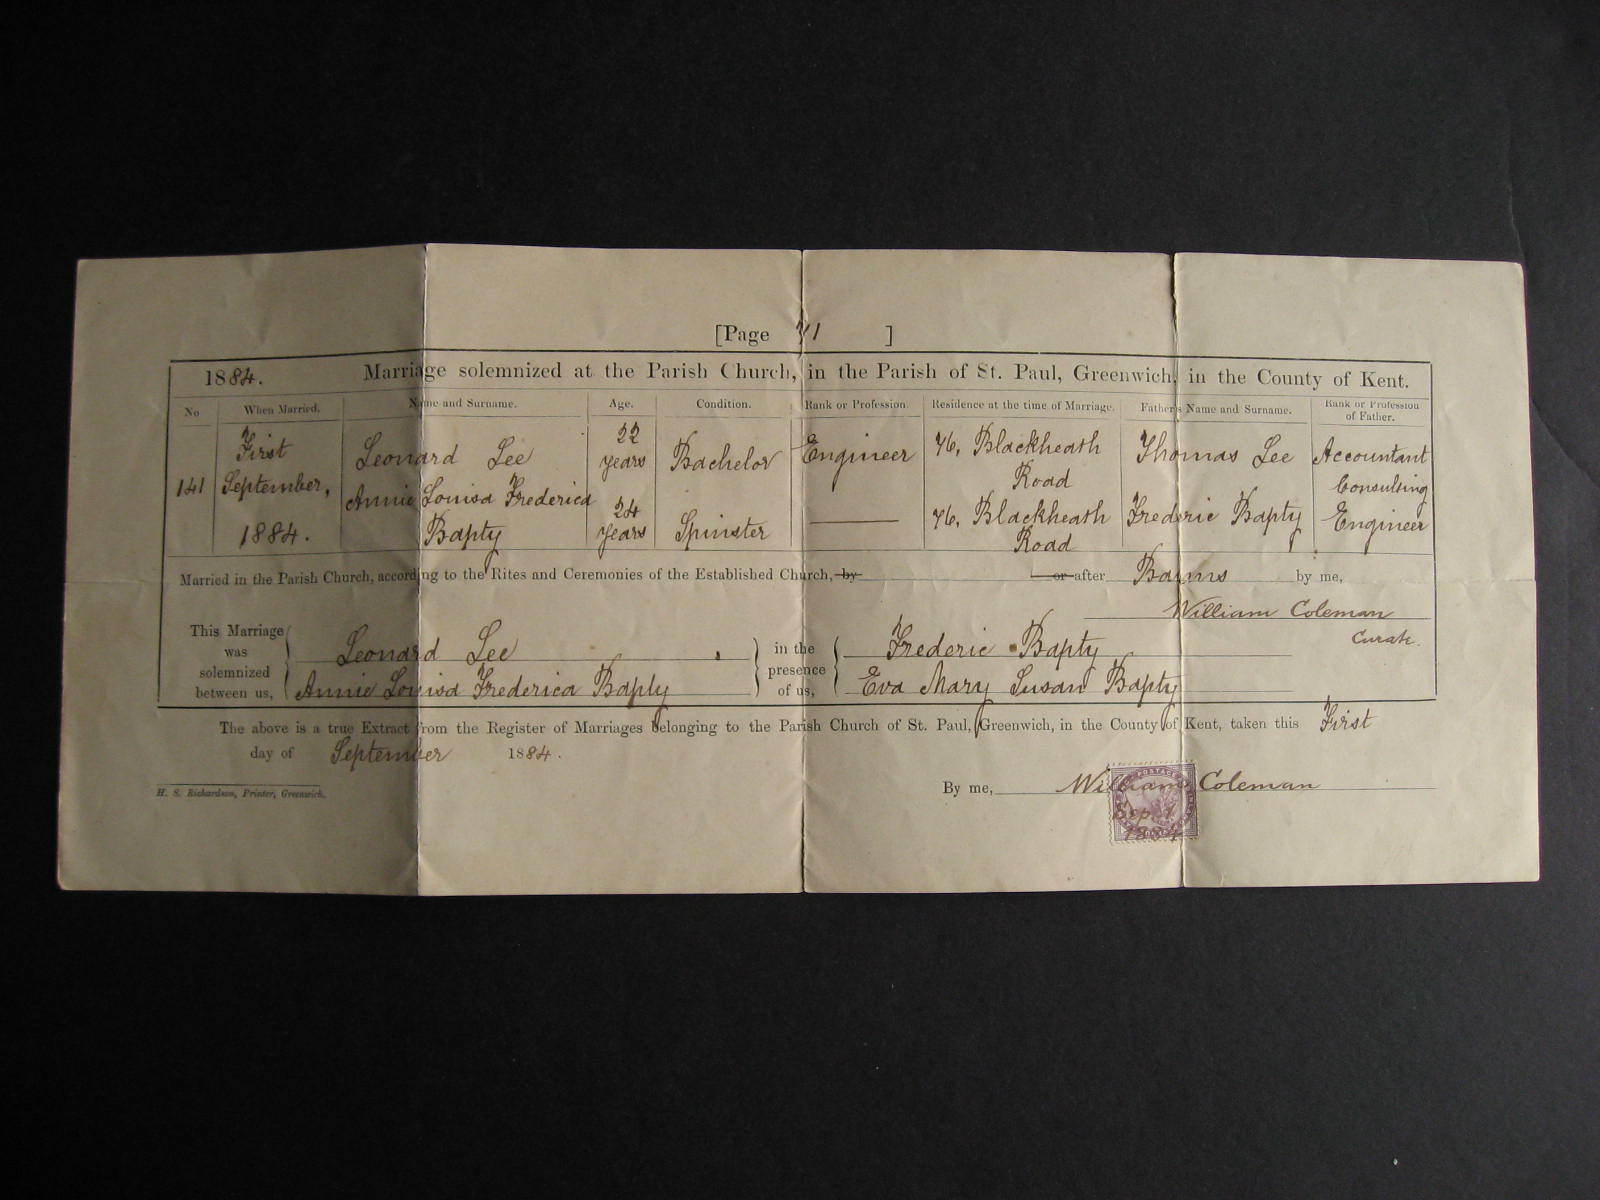 [Page 71 ]
1884. Marriage solemnized at the Parish Church, in the Parish of St. Paul, Greenwich, in the County of Kent.
No When Married. Name and Surname. Age. Condition. Rank or Profession. Residence at the time of Marriage. Father's Name and Surname. Rank or Profession of Father.
141 First September, 1884. Leonard Lee 22 years Bachelor Engineer 76, Blackheath Road Thomas Lee Accountant
Annie Louisa Frederica Bapty 24 years Spinster 76, Blackheath Road Frederic Bapty Consulting Engineer
Married in the Parish Church, according to the Rites and Ceremonies of the Established Church, by or after Banns by me,
William Coleman
Curate.
This Marriage was solemnized between us, Leonard Lee
Annie Louisa Frederica Bapty
in the presence of us, Frederic Bapty
Eva Mary Susan Bapty
The above is a true Extract from the Register of Marriages belonging to the Parish Church of St. Paul, Greenwich, in the County of Kent, taken this First
day of September 1884.
H. S. Richardson, Printer, Greenwich.
By me, William Coleman
POSTAGE
Sep. 1
1884